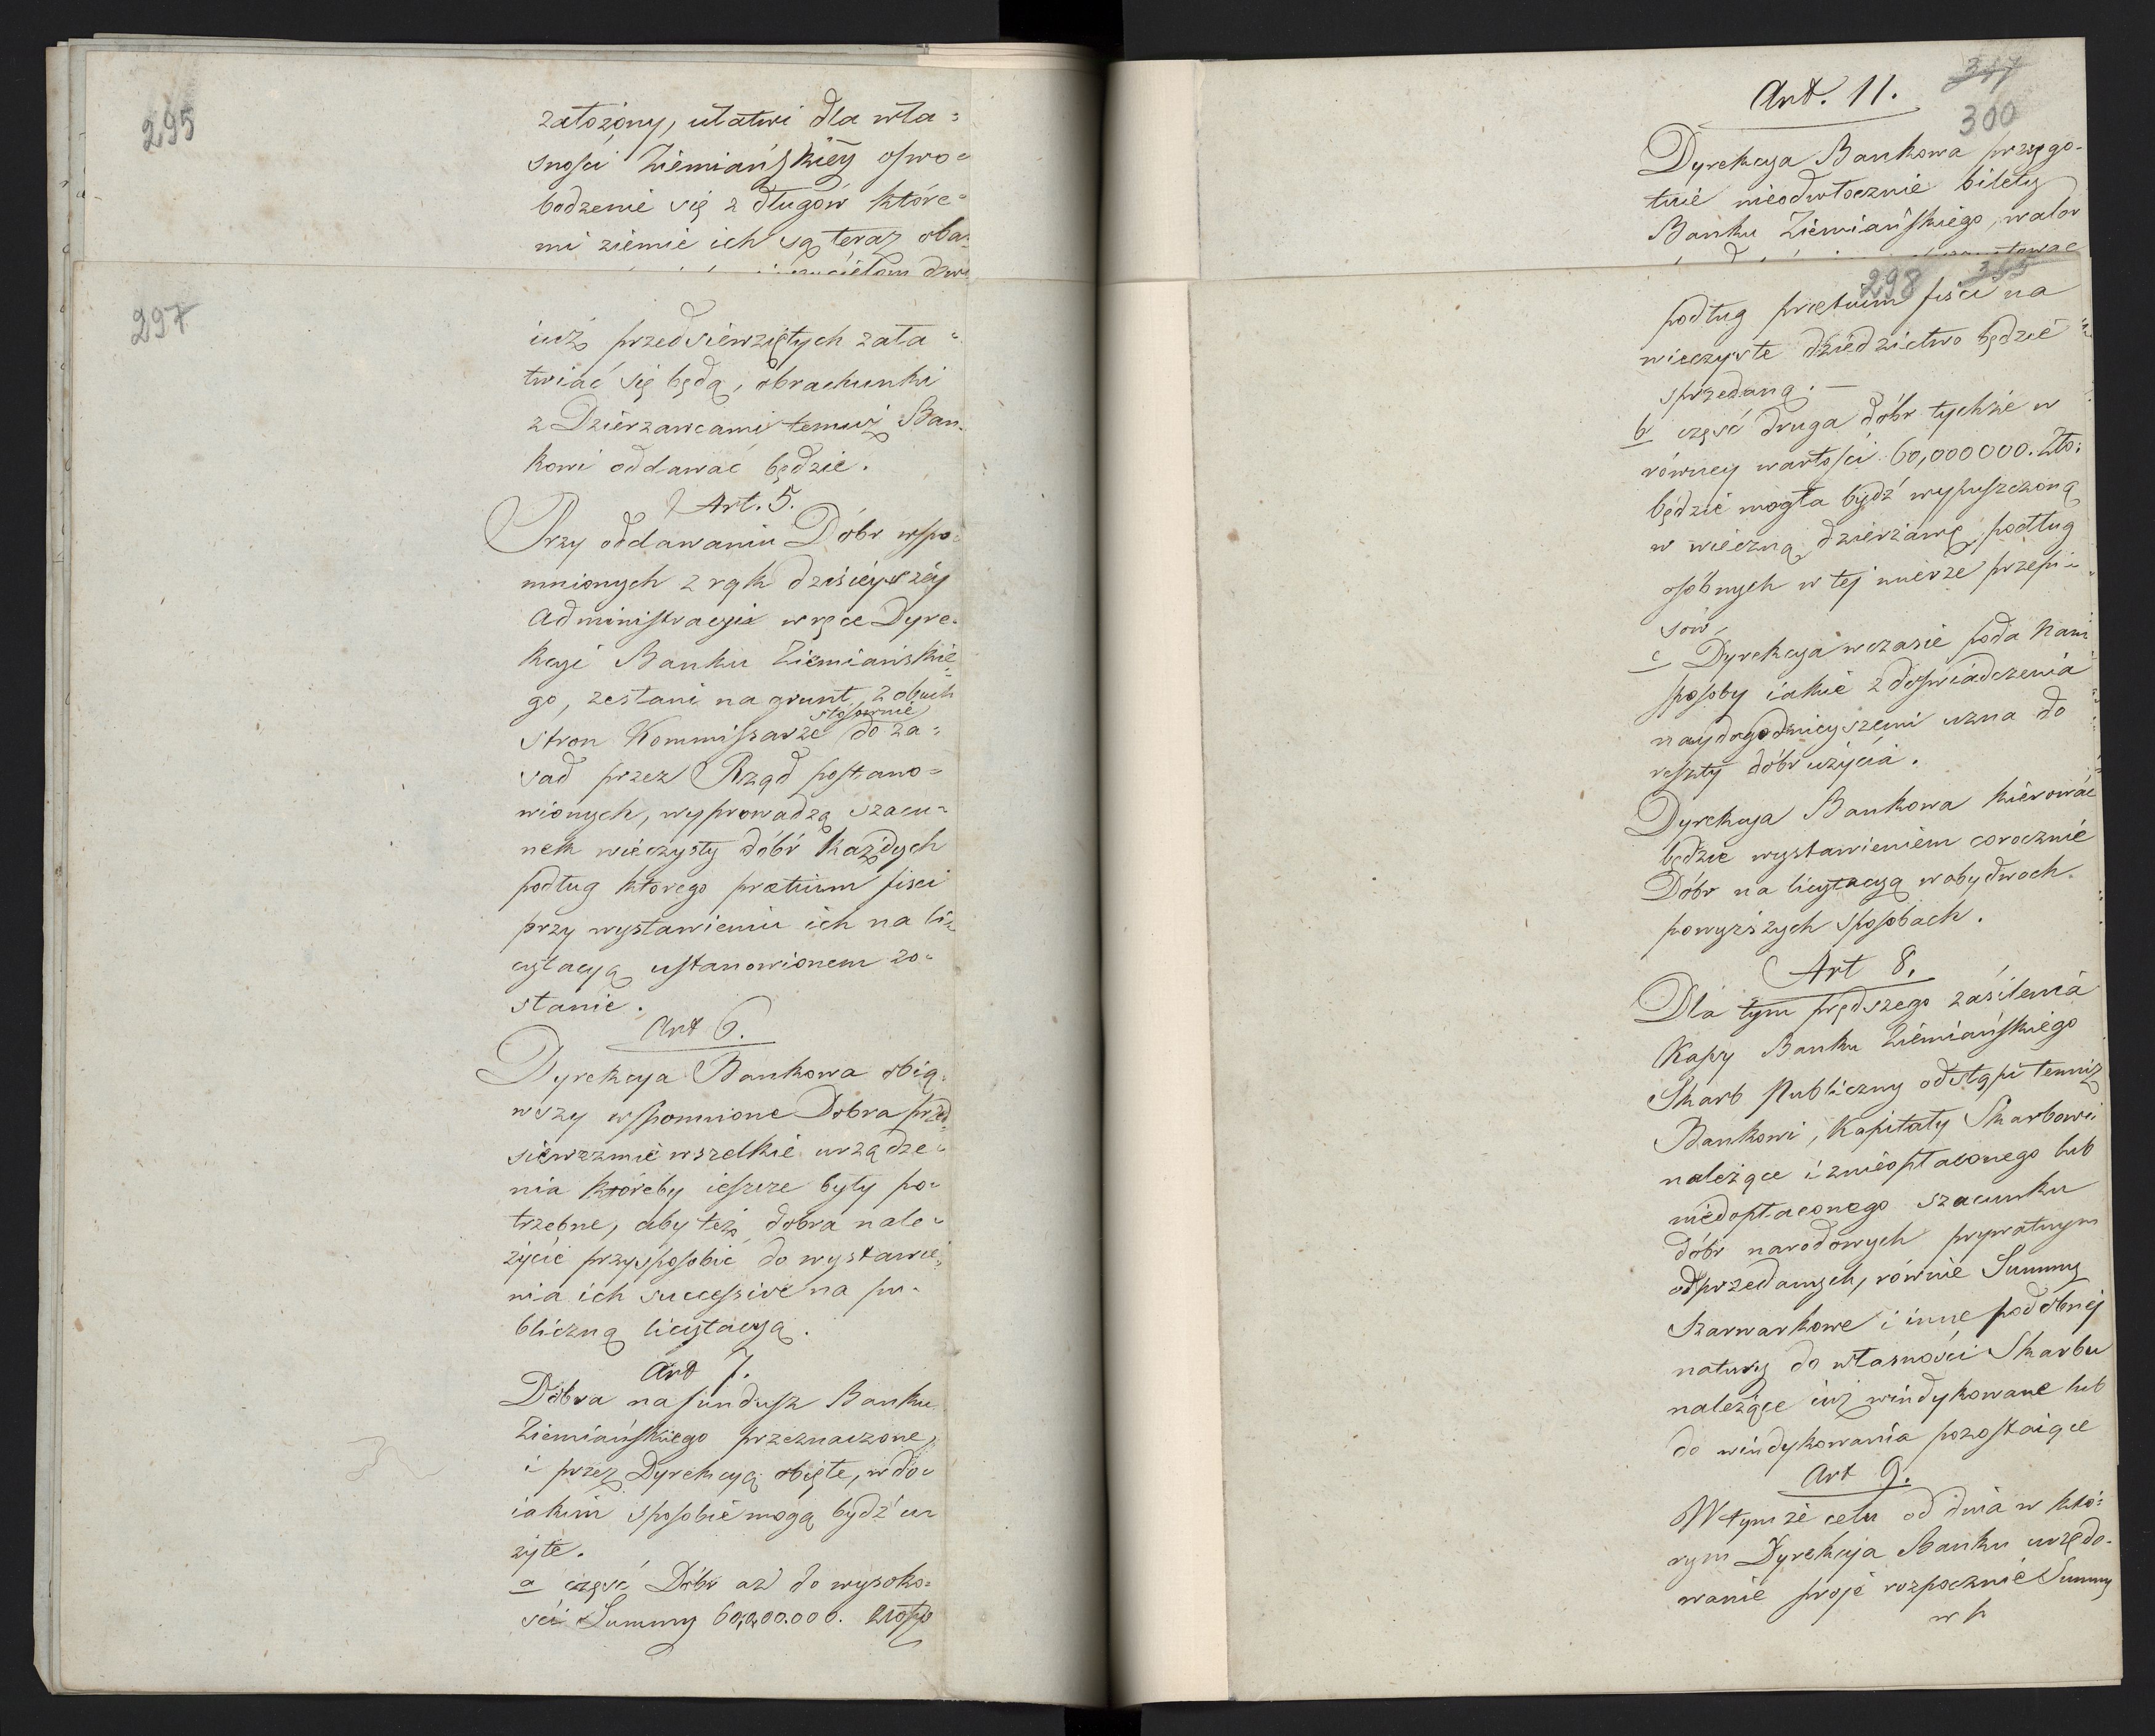 295
założony, ułatwi dla wła=
sności Ziemiańskiéy oswo=
bodzenie się z długów któré=
mi ziemie ich są teraz oba=
297
iuż przedsiewziętych zała=
twiać się będą, obrachunki
z Dzierzawcami temuż Ban=
kowi oddawać będzie.
Art. 5.
Przy oddawaniu Dóbr wspo=
mnionych z rąk dzisieyszéy
Administracyi w ręce Dyre=
kcyi Banku Ziemiańskie=
go, zesłani na grunt, z obuch
stron Kommissarze stósownie do za=
sad przez Rząd postano=
wionych, wyprowadzą szacu=
nek wieczysty dóbr każdych
podług ktorego prætium fisci
przy wystawieniu ich na li=
cytacyą ustanowionem zo=
stanie.
Art 6.
Dyrekcya Bankowa obią=
wszy wspomnione Dobra przed=
siewezmie wszelkie urządze=
nia któreby ieszcze były po=
trzebne, aby też dobra nale=
życie przysposobić do wystawie=
nia ich successive na pu=
bliczną licytacyą.
Art 7.
Dobra na fundusz Banku
Ziemiańskiego przeznaczone,
i przez Dyrekcyą obięte, w do=
iakim sposobie mogą bydź u=
żyte.
a część Dóbr aż do wysoko=
ści Summy 60,000.000. złotp
Art. 11.
317
300
Dyrekcya Bankowa przygo=
tuie nieodwłocznie bilety
Banku Ziemiańskiego, walor
298
podług prætium fisci na
wieczyste dziedzictwo będzie
sprzedaną. —
b część druga dóbr tychże w
równey wartości 60,000000. Zło:
będzie mogła bydź wypuszczoną
w wieczną dzierżawę, podług
osóbnych w tej mierze przepi=
sów,
c Dyrekcya wczasie poda Nam
sposoby iakie z doświadczenia
naydogodnieyszemi uzna do
reszty dóbr użycia.
Dyrekcya Bankowa kierować
będzie wystawieniem corocznie
Dóbr na licytacyą w obydwoch
powyższych sposobach.
Art 8.
Dla tym prędszego zásilenia
Kassy Banku Ziemiańskiego
Skarb Publiczny odstąpi temuż
Bankowi, Kapitały Skarbowi
należące i znieopłaconego lub
niedopłaconego szacunku
dóbr narodowych prywatnym
odprzedanych, równie Summy
Szarwarkowe i inne podobnéj
natury do własności Skarbu
należące iuż windykowane lub
do windykowania pozostaiące
Art 9.
W tymże celu od dnia w któ=
rym Dyrekcya Banku urzędo=
wanie swoje rozpocznie Summy
w k